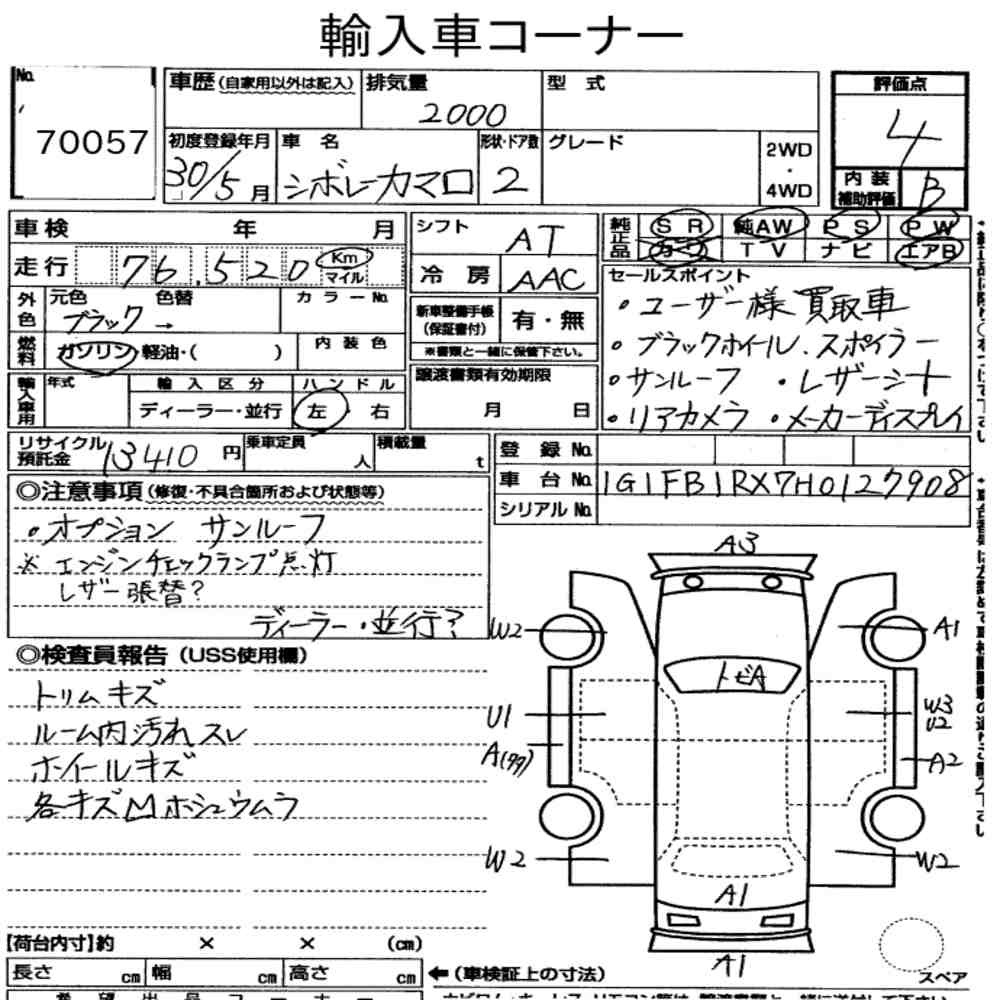 輸入車コーナー
No.
70057
車歴(自家用以外は記入) 排気量 2000 型式
評価点 4
初度登録年月 30/5月 車名 シボレーカマロ 形状・ドア数 2 グレード 2WD・4WD
内装補助評価 B
車検 年 月 シフト AT
純正品 SR 純AW PS PW
カワ TV ナビ エアB
走行 76,520 Km マイル 冷房 AAC
外色 元色 ブラック→ 色替 カラーNo.
新車整備手帳(保証書付) 有・無
※書類と一緒に保管下さい。
燃料 ガソリン・軽油・( ) 内装色
輸入車用 年式 輸入区分 ディーラー・並行 ハンドル 左・右
譲渡書類有効期限 月 日
セールスポイント
・ユーザー様買取車
・ブラックホイール.スポイラー
・サンルーフ ・レザーシート
・リアカメラ ・メーカーディスプレイ
リサイクル預託金 13410円 乗車定員 人 積載量 t
登録No.
車台No. 1G1FB1RX7H0127908
シリアルNo.
◎注意事項(修復・不具合箇所および状態等)
・オプション サンルーフ
※エンジンチェックランプ点灯
レザー張替?
ディーラー・並行?
◎検査員報告(USS使用欄)
トリムキズ
ルーム内汚れスレ
ホイールキズ
各キズMホシュウムラ
A3
W2
A1
トビA
U1
W3
U2
A(99)
A2
W2
W2
A1
A1
スペア
【荷台内寸】約 × × (cm)
長さ cm 幅 cm 高さ cm
←(車検証上の寸法)